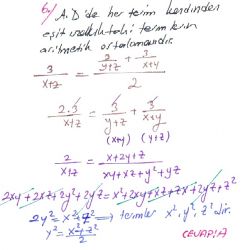 6.) A.D'de her terim kendinden
eşit uzaklıktaki terimlerin
aritmetik ortalamasıdır.
3/(x+z) = (3/(y+z) + 3/(x+y))/2
2.3/(x+z) = 3/(y+z) + 3/(x+y)
(x+y) (y+z)
2/(x+z) = (x+2y+z)/(xy+xz+y²+yz)
2xy+2xz+2y²+2yz=x²+2xy+xz+zx+2yz+z²
2y²=x²+z² ⇒ terimler x², y², z² dir.
y²=(x²+z²)/2
CEVAP:A